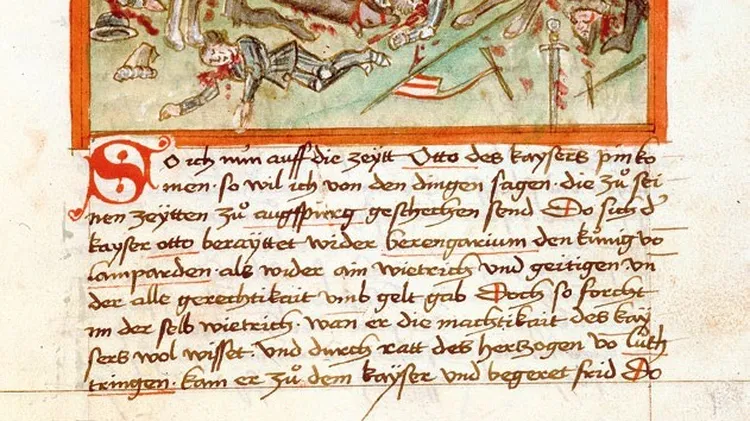 So ich nun auff die zeytt Otto des kaysers pin ko
men · so wil ich von den dingen sagen · die zů sei
nen zeytten zů augspurg geschechen send Do sich d'
kayser otto berayttet wider berengarium den kůnig vo
lamparden · als wider ain wietrich und geitigen · vn
der alle gerechtikait umb gelt gab Doch so forcht
im der selb wietrich · wan er die machtikait des kay
sers wol wisset · und durch ratt des hertzogen vo luth
tringen · kam er zů dem kayser und begeret frid Do